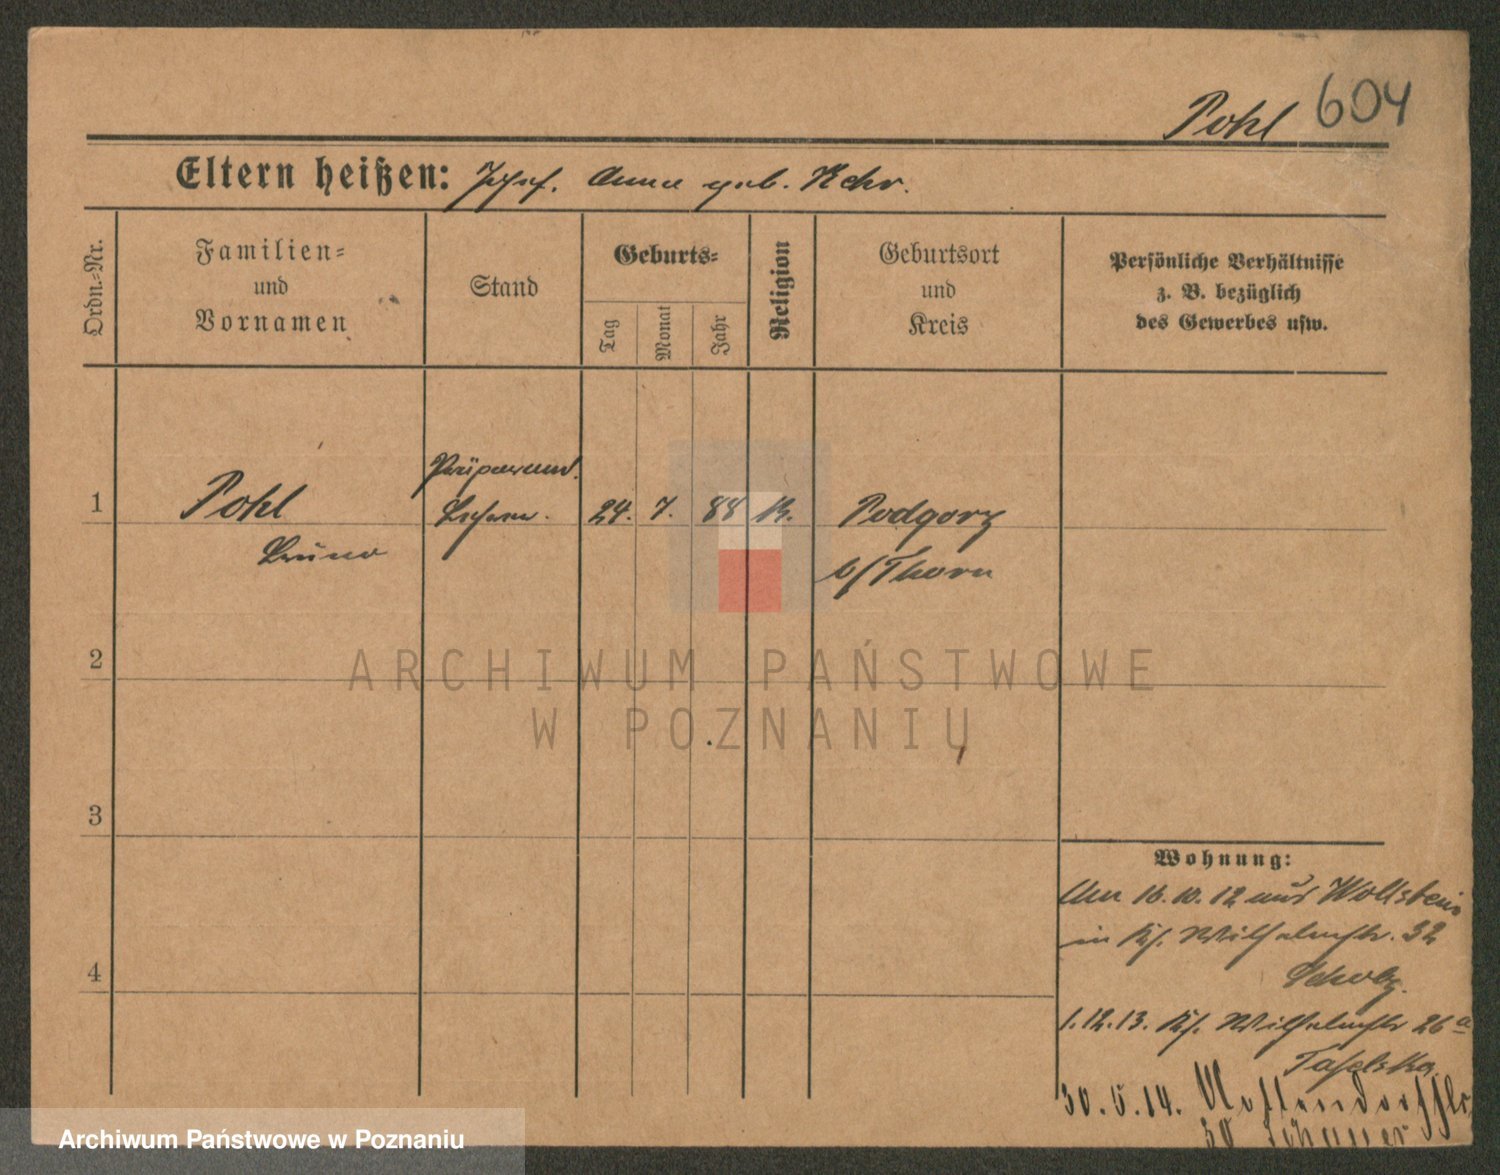 Pohl 604
Eltern heißen: Josef. Anna geb. Kehr.
Ordn.-Nr.
Familien-
und
Vornamen
Stand
Geburts-
Tag
Monat
Jahr
Religion
Geburtsort
und
Kreis
Persönliche Verhältnisse
z. B. bezüglich
des Gewerbes usw.
Präparand.
1 Pohl Lehrer. 24. 7. 88 K. Podgorz
Bruno
b/Thorn
2
ARCHIWUM PAŃSTWOWE
W POZNANIU
3
Wohnung:
16.10.12 aus Wollstein
in Wilhelmstr. 32
Scholz.
4
1.12.13. Wilhelmstr 26a
30.5.14.
30 Schauer
Archiwum Państwowe w Poznaniu